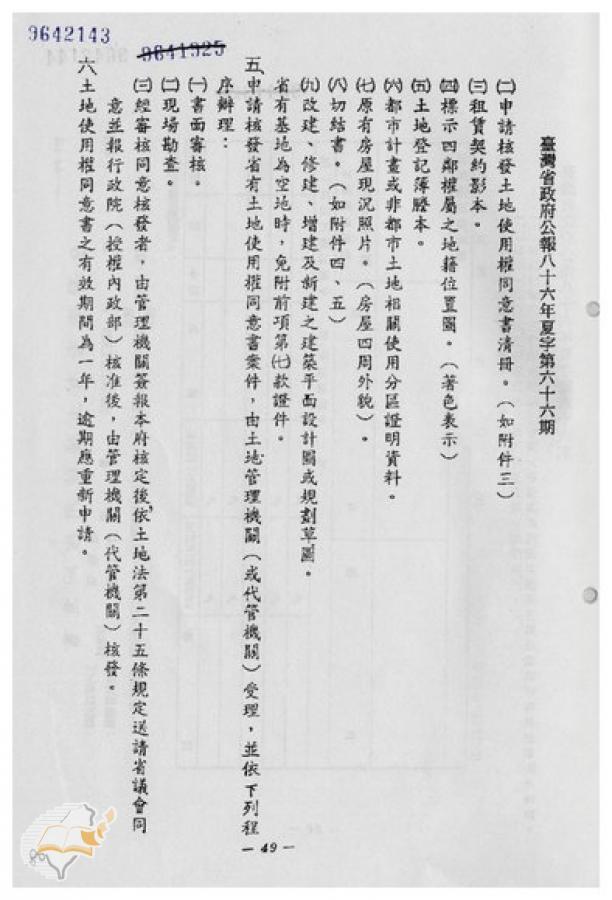 9642143
9641925
臺灣省政府公報八十六年夏字第六十六期
㈡申請核發土地使用權同意書清冊。（如附件三）
㈢租賃契約影本。
㈣標示四鄰權屬之地籍位置圖。（著色表示）
㈤土地登記簿謄本。
㈥都市計畫或非都市土地相關使用分區證明資料。
㈦原有房屋現況照片。（房屋四周外貌）。
㈧切結書。（如附件四、五）
㈨改建、修建、增建及新建之建築平面設計圖或規劃草圖。
省有基地為空地時，免附前項第㈦款證件。
五、申請核發省有土地使用權同意書案件，由土地管理機關（或代管機關）受理，並依下列程
序辦理：
㈠書面審核。
㈡現場勘查。
㈢經審核同意核發者，由管理機關簽報本府核定後，依土地法第二十五條規定送請省議會同
意並報行政院（授權內政部）核准後，由管理機關（代管機關）核發。
六、土地使用權同意書之有效期間為一年，逾期應重新申請。
— 49 —